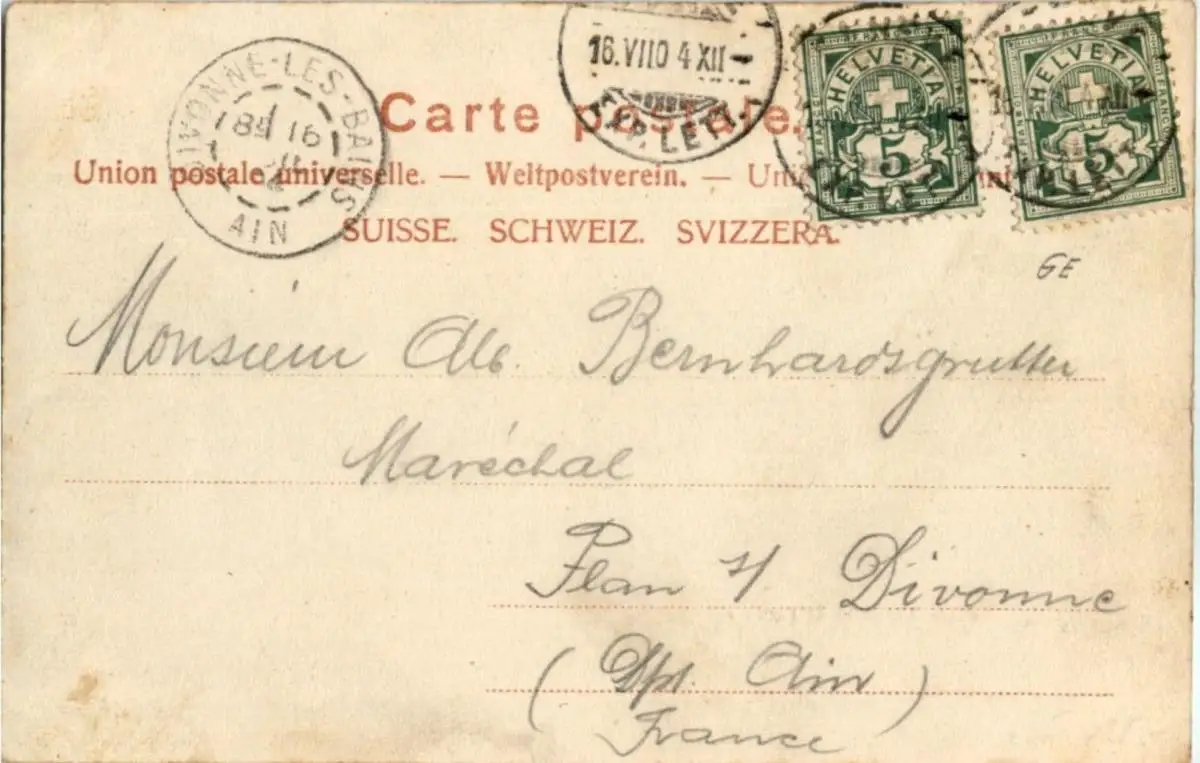 Carte postale.
Union postale universelle. — Weltpostverein. —
SUISSE. SCHWEIZ. SVIZZERA.
DIVONNE-LES-BAINS
16
AIN
16.VII 04 XII
EXP. LETT.
HELVETIA
5
HELVETIA
5
GE
Monsieur Alb. Bernhardsgrutter
Maréchal
Plan s/ Divonne
(Dpt. Ain)
France